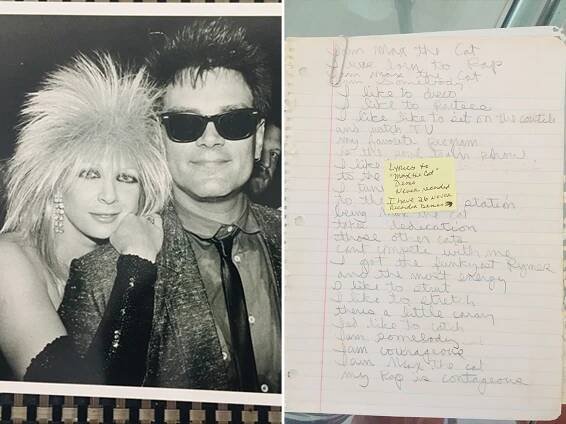 I am Max the Cat
I was born to Rap
I am Max the Cat
I am Somebody
I like to disco
I like to
I like like to set on the
and watch TV
my favorite program
is the soul train show
I like
to the
I tune
to the station
being the cat
takes dedication
those other cats
cant compete with me
I got the funkyest Rymes
and the most energy
I like to strut
I like to stretch
theres a little canary
Id like to catch
I am somebody
I am courageous
I am Max the cat
my Rap is contageous
Lyrics to
"Max the Cat"
Demo
Never recorded
I have 26 never
Recorded Demos